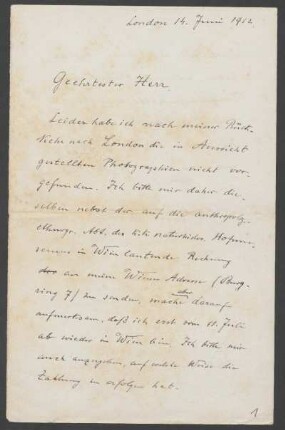 London 14. Juni 1912.
Geehrtester Herr.
Leider habe ich nach meiner Rück-
kehr nach London die in Aussicht
gestellten Photographien nicht vor-
gefunden. Ich bitte mir daher die-
selben nebst der auf die anthropolg.
ethnogr. Abt. des k.k. naturhistor. Hofmu-
seums in Wien lautende Rechnung
an meine Wiener Adresse (Burg-
ring 7) zu senden, mache aber darauf
aufmerksam, daß ich erst vom 18. Juli
ab wieder in Wien bin. Ich bitte mir
auch anzugeben, auf welche Weise die
Zahlung zu erfolgen hat.
1